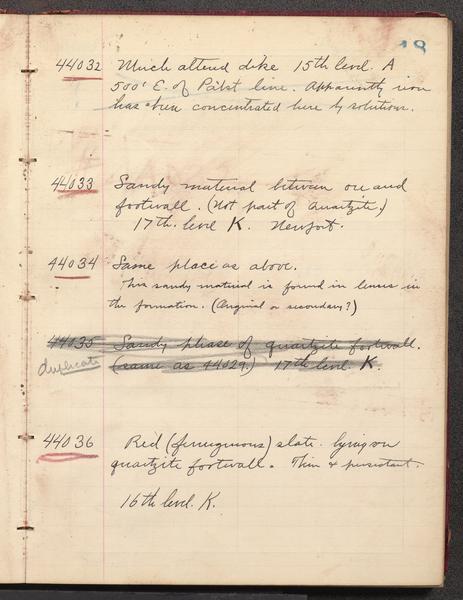 18
44032 Much altered dike 15th level. A
500' E. of Pabst line. Apparently iron
has been concentrated here by solutions.
44033 Sandy material between ore and
footwall. (Not part of Quartzite.)
17th. level K. Newport.
44034 Same place as above.
This sandy material is found in lenses in
the formation. (Original or secondary?)
44035 Sandy phase of quartzite footwall.
duplicate (same as 44029.) 17th level. K.
44036 Red (ferruginous) slate lying on
quartzite footwall. Thin & persistent.
16th level. K.